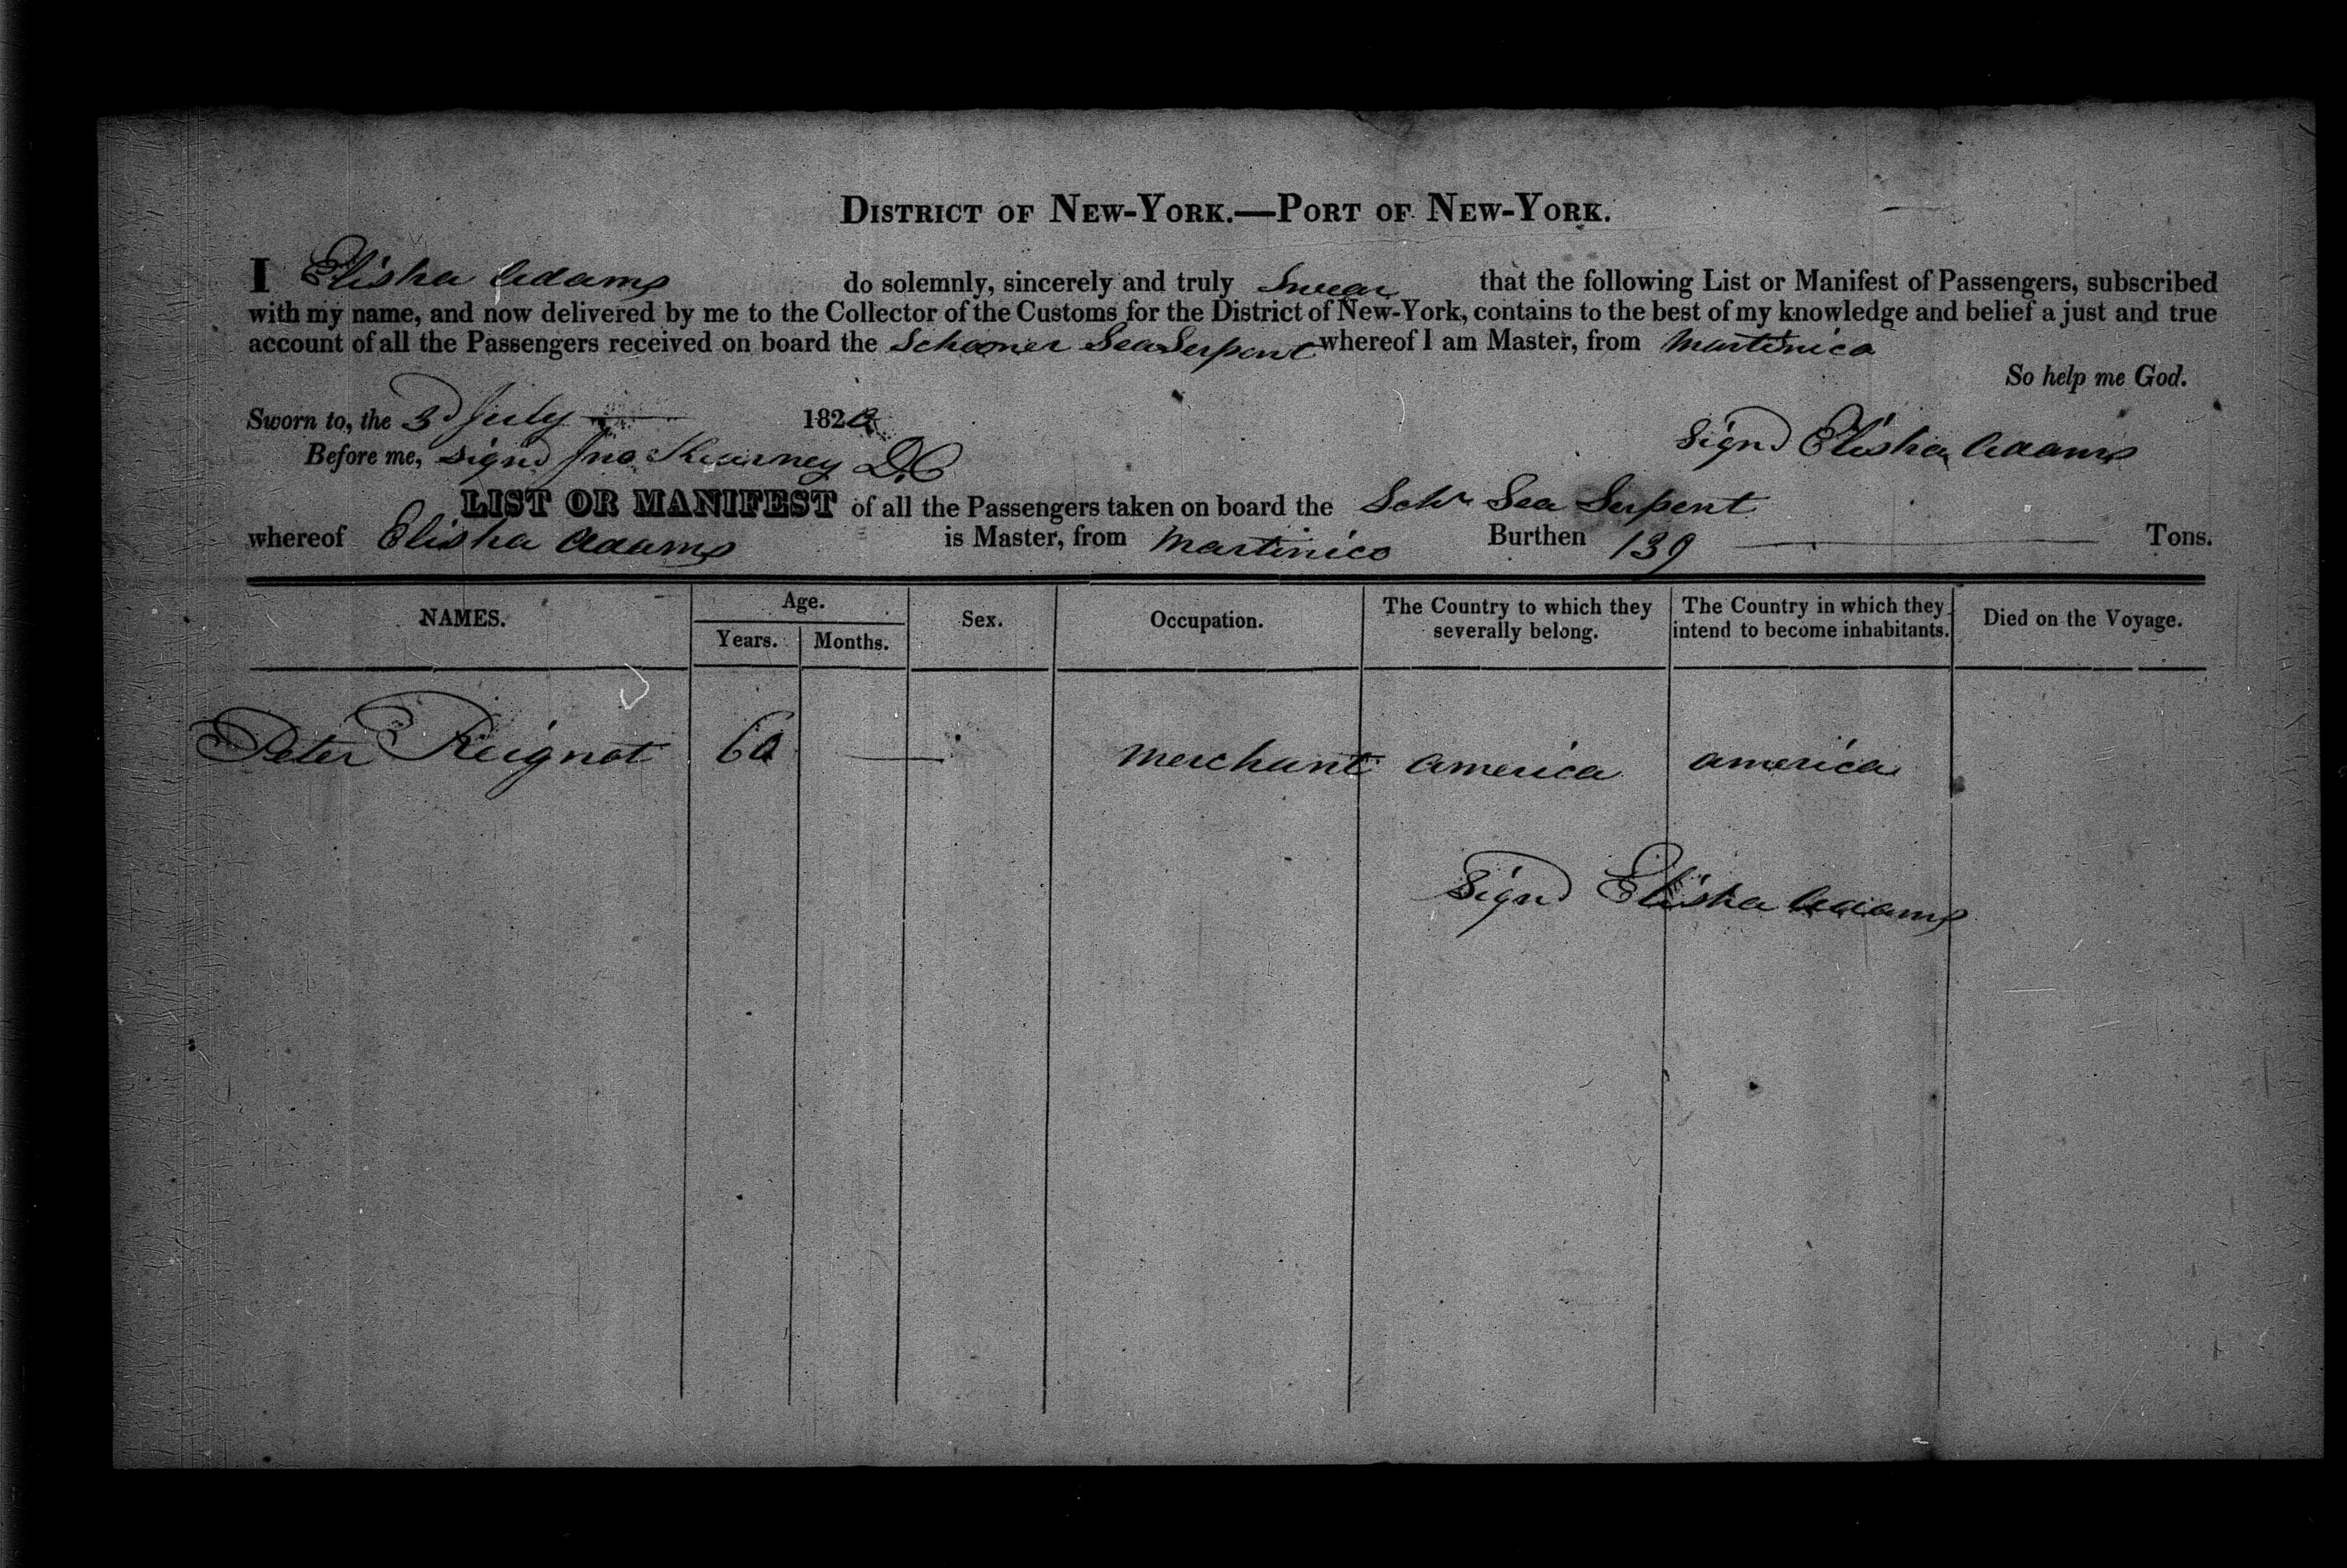 DISTRICT OF NEW-YORK.—PORT OF NEW-YORK.
I Elisha Adams do solemnly, sincerely and truly Swear that the following List or Manifest of Passengers, subscribed
with my name, and now delivered by me to the Collector of the Customs for the District of New-York, contains to the best of my knowledge and belief a just and true
account of all the Passengers received on board the Schooner Sea Serpent whereof I am Master, from Martinico
So help me God.
Sworn to, the 3d July 182
Signd Elisha Adams
Before me, Signd Jno. Kearney D.C
LIST OR MANIFEST of all the Passengers taken on board the Schr Sea Serpent
whereof Elisha Adams is Master, from Martinico Burthen 139 Tons.
NAMES. Age. Sex. Occupation. The Country to which they severally belong. The Country in which they intend to become inhabitants. Died on the Voyage.
Years. Months.
Peter Reignot 60 — merchant america america
Signd Elisha Adams